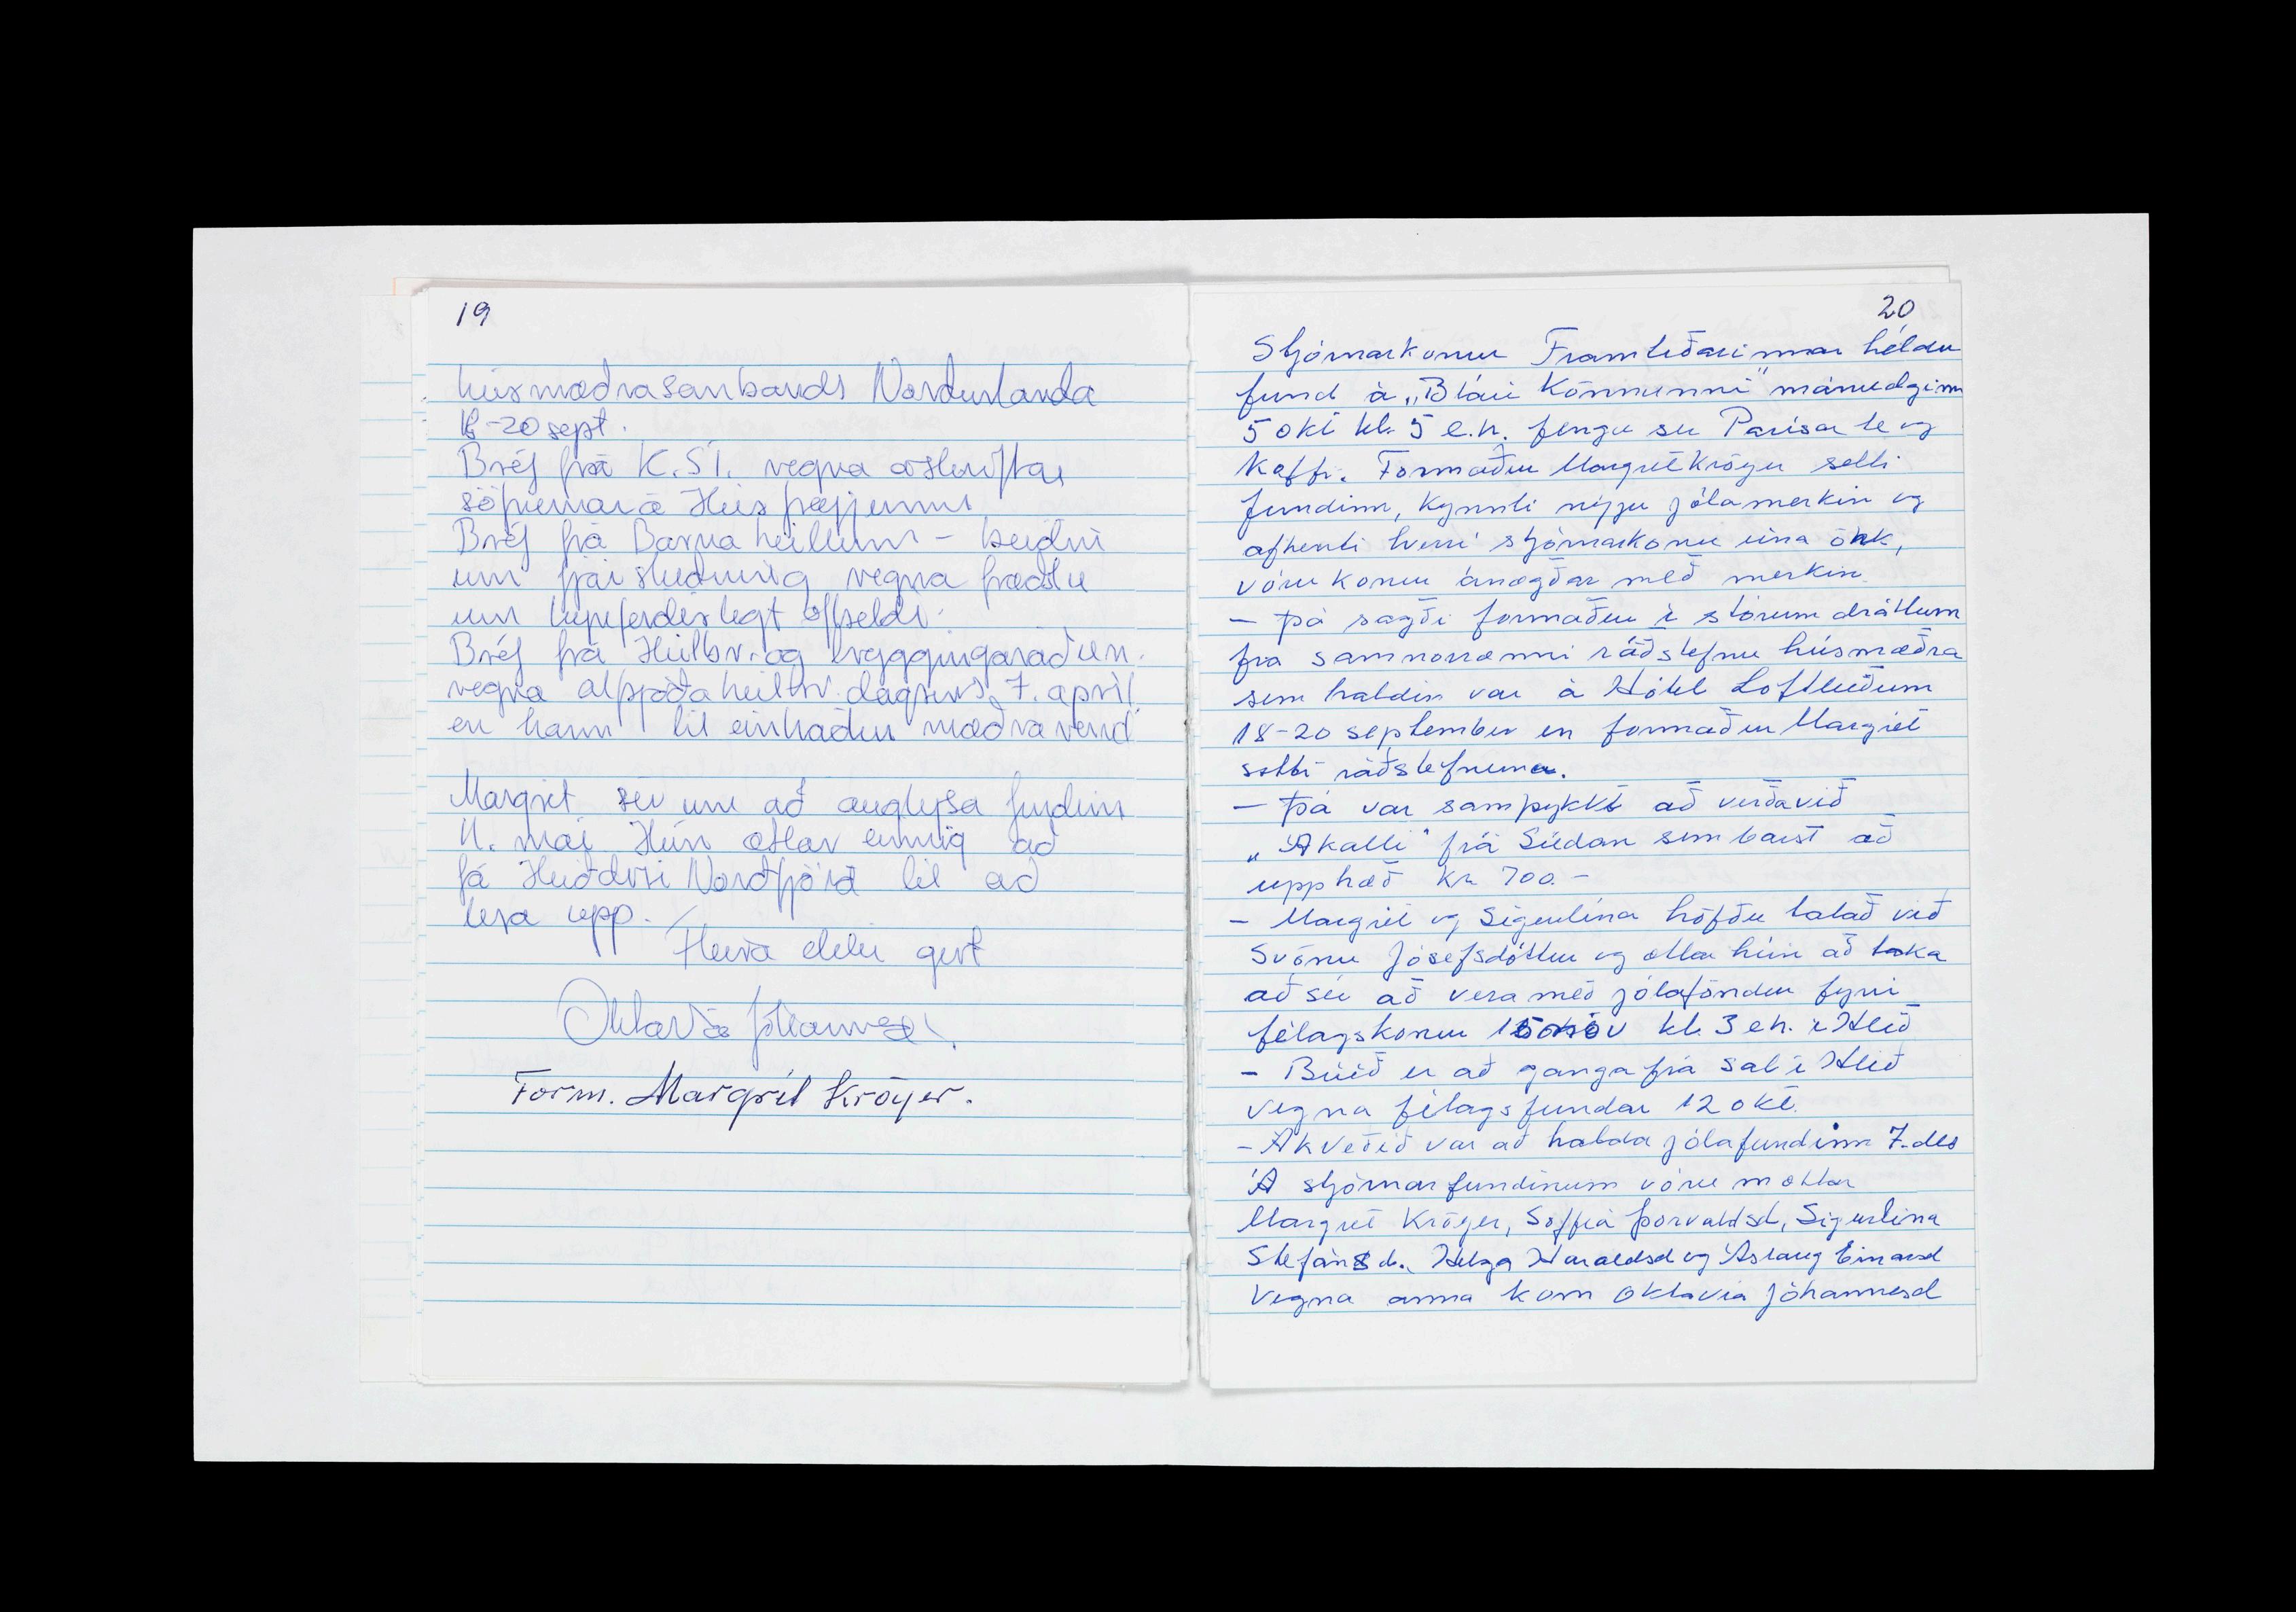 19
húsmæðrasambands Norðurlanda
18-20 sept.
Bréf frá K.S.Í. vegna áskriftar
söfnunar á Húsfreyjunni
Bréf frá Barnaheillum - beiðni
um fjárstuðning vegna fræðslu
um kynferðislegt ofbeldi.
Bréf frá Heilbr. og tryggingaráðun.
vegna alþjóða heilbr. dagsins 7. apríl
en hann til einkaður mæðravernd
Margrét sér um að auglýsa fundinn
11. maí Hún ætlar einnig að
fá Heiðdísi Norðfjörð til að
lesa upp.
Fleira ekki gert
Oktavía Jóhannesd.
Form. Margrét Kröyer.
20
Stjórnarkonur Framtíðarinnar héldu
fund á „Bláu Könnunni" mánudaginn
5 okt kl. 5 e.h. fengu sér Parísar te og
Kaffi. Formaður Margrét Kröyer setti
fundinn, kynnti nýju jólamerkin og
afhenti hverri stjórnarkonu eina örk,
vóru konur ánægðar með merkin
- Þá sagði formaður í stórum dráttum
frá samnorrænni ráðstefnu húsmæðra
sem haldin var á Hótel Loftleiðum
18-20 september en formaður Margrét
setti ráðstefnuna.
- Þá var samþykkt að verða við
„Ákalli" frá Súdan sem barst að
upphæð kr 700.-
- Margrét og Sigurlína höfðu talað við
Svönu Jósefsdóttur og ætlar hún að taka
að sér að vera með jólaföndur fyrir
félagskonur 15 nóv kl. 3 e.h. í Hlíð
- Búið er að ganga frá sal í Hlíð
vegna félagsfundar 12 okt.
- Ákveðið var að halda jólafundinn 7. des
Á stjórnarfundinum vóru mættar
Margrét Kröyer, Soffía Þorvaldsd, Sigurlína
Stefánsd., Helga Haraldsd og Áslaug Einarsd
Vegna anna kom Oktavía Jóhannesd